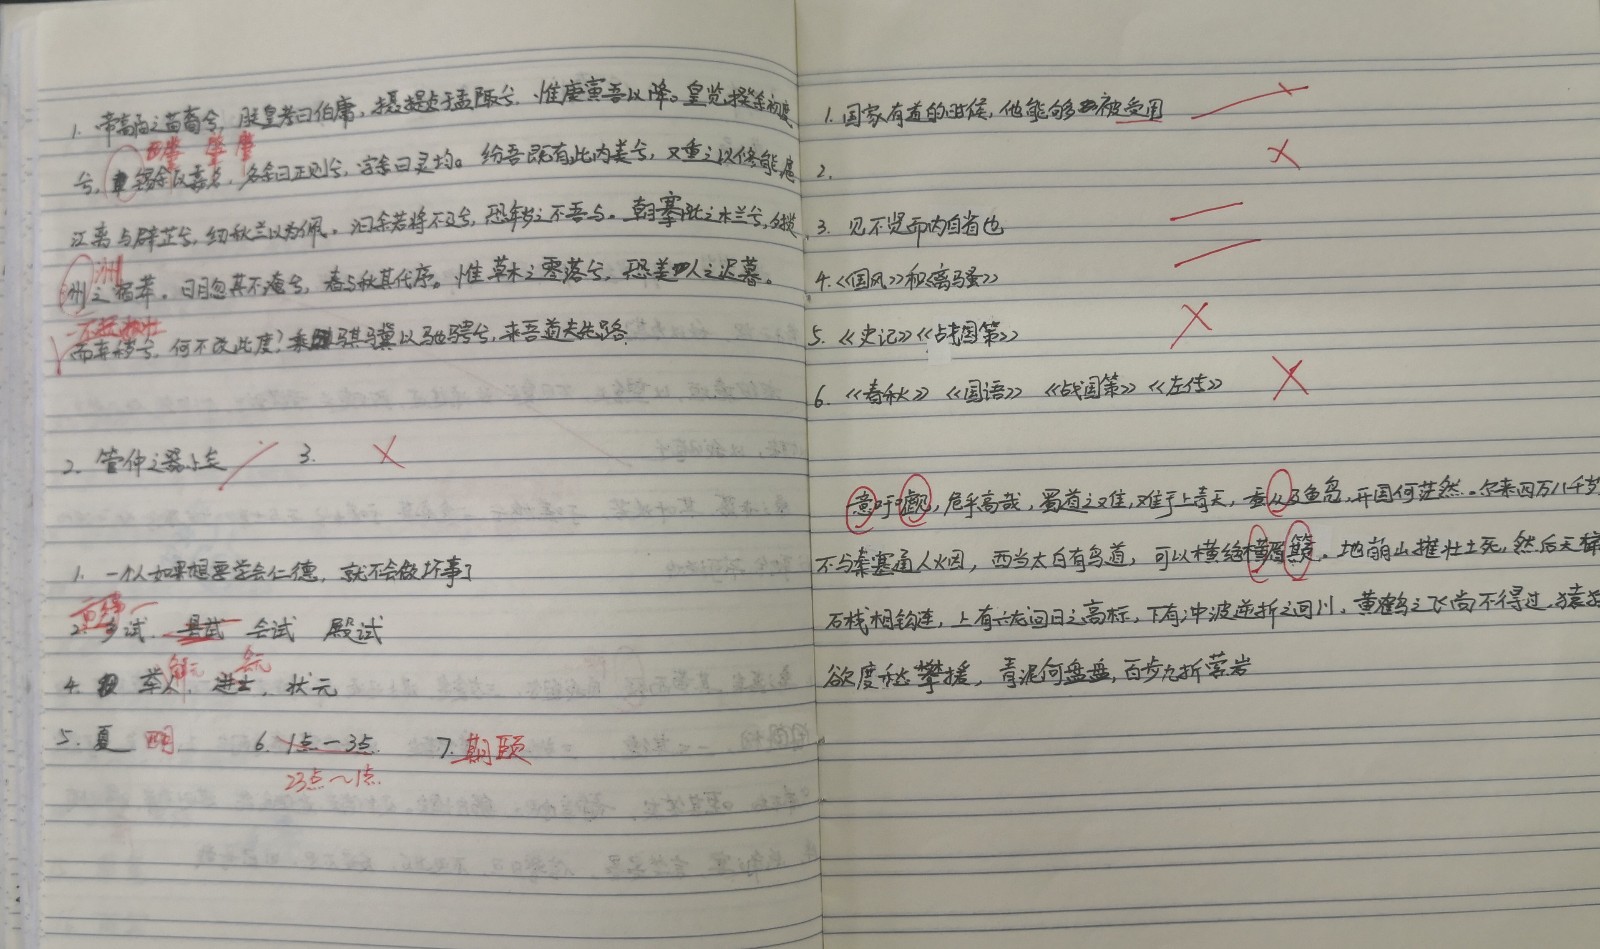 1. 帝高阳之苗裔兮，朕皇考曰伯庸，摄提贞于孟陬兮，惟庚寅吾以降。皇览揆余初度
肇 肇 肇
兮，锡余以嘉名，名余曰正则兮，字余曰灵均。纷吾既有此内美兮，又重之以修能扈
江离与辟芷兮，纫秋兰以为佩。汩余若将不及兮，恐年岁之不吾与。朝搴阰之木兰兮，夕揽
洲
洲之宿莽。日月忽其不淹兮，春与秋其代序。惟草木之零落兮，恐美人之迟暮。
不抚壮
而弃秽兮，何不改此度？乘骐骥以驰骋兮，来吾道夫先路
2. 管仲之器小矣 3.
1. 一个人如果想要学会仁德，就不会做坏事了
2. 乡试、县试 会试 殿试
解元 会元
4. 举人，进士，状元
5. 夏 明 6. 1点—3点 7. 期颐
23点～1点
1. 国家有道的时候，他能够被受用
2.
3. 见不贤而内自省也
4.《国风》和《离骚》
5.《史记》《战国策》
6.《春秋》《国语》《战国策》《左传》
意吁嚱，危乎高哉，蜀道之难，难于上青天，蚕从及鱼凫，开国何茫然。尔来四万八千岁
不与秦塞通人火烟，西当太白有鸟道，可以横绝横眉巅。地崩山摧壮士死，然后天梯
石栈相钩连，上有六龙回日之高标，下有冲波逆折之回川，黄鹤之飞尚不得过，猿猱
欲度愁攀援，青泥何盘盘，百步九折萦岩